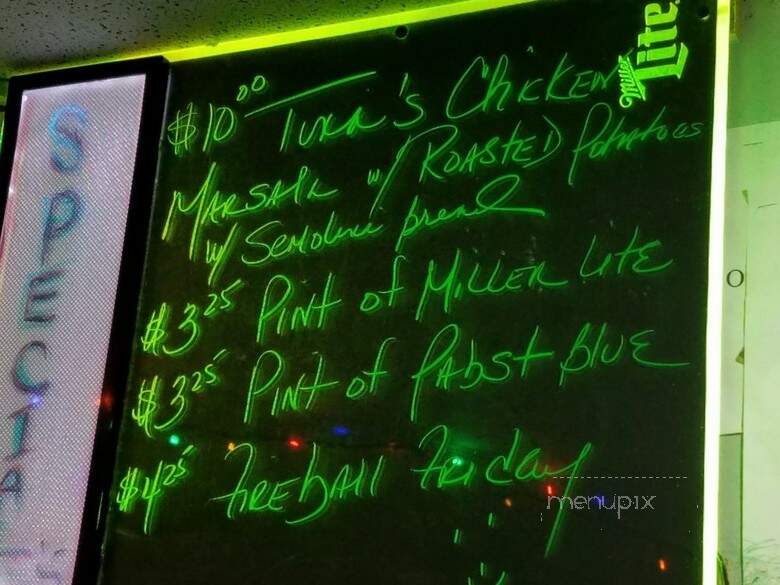 SPECIAL'S
Miller Lite
$10 00 Tuna's Chicken
Marsala w/ Roasted Potatoes
w/ Semolina bread
$3 25 Pint of Miller Lite
$3 25 Pint of Pabst Blue
$4 25 Fireball Friday
menupix
O